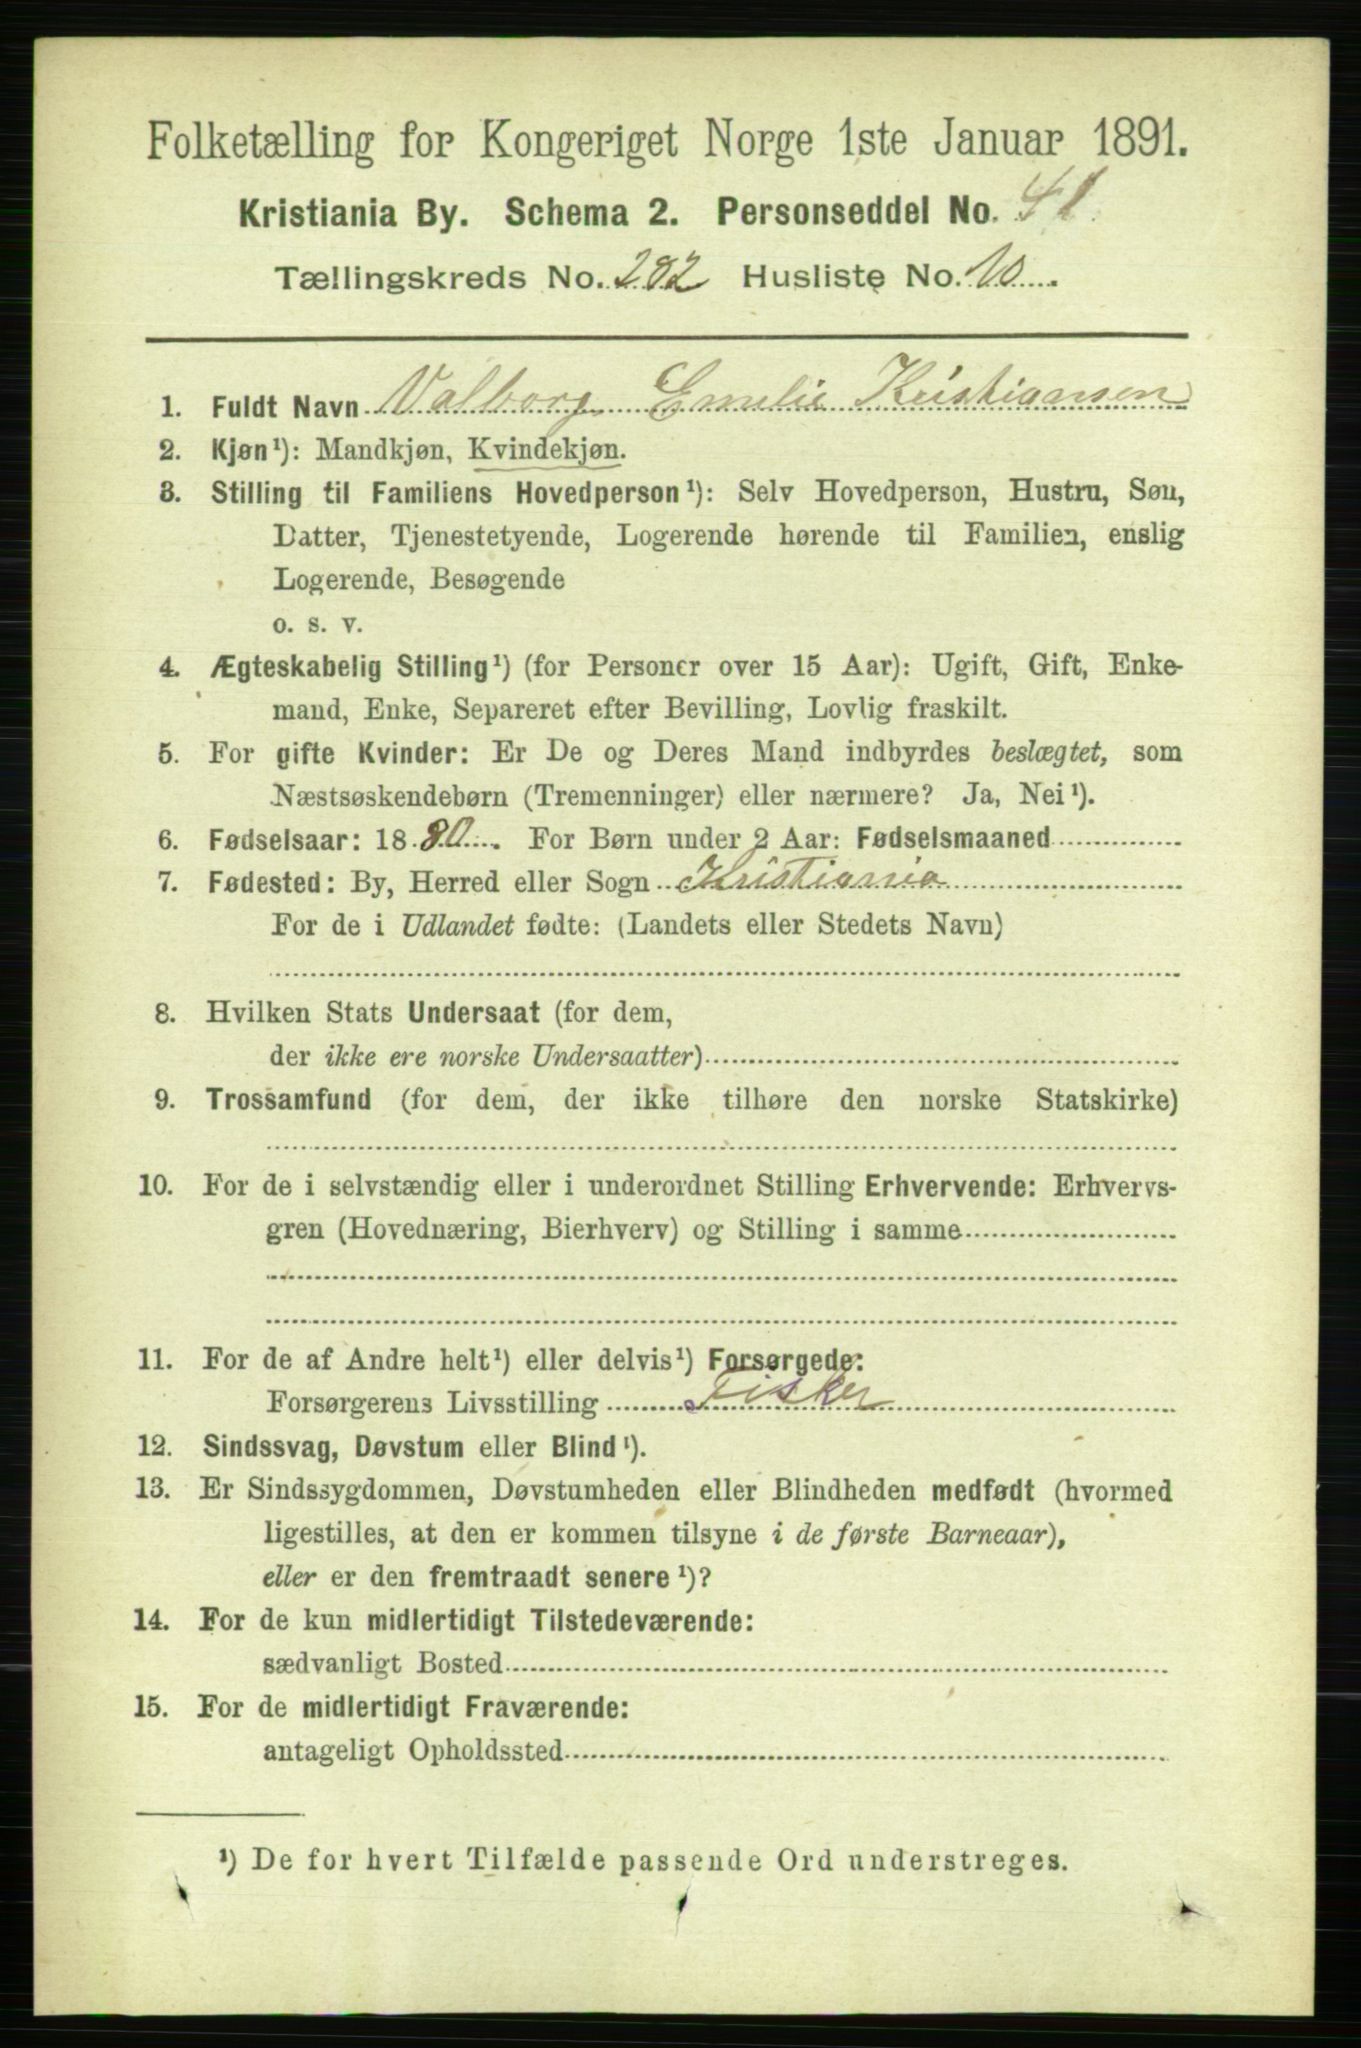 Folketælling for Kongeriget Norge 1ste Januar 1891.
Kristiania By. Schema 2. Personseddel No. 41
Tællingskreds No. 282 Husliste No. 10
1. Fuldt Navn Valborg Emelie Kristiansen
2. Kjøn¹): Mandkjøn, Kvindekjøn.
3. Stilling til Familiens Hovedperson¹): Selv Hovedperson, Hustru, Søn,
Datter, Tjenestetyende, Logerende hørende til Familien, enslig
Logerende, Besøgende
o. s. v.
4. Ægteskabelig Stilling¹) (for Personer over 15 Aar): Ugift, Gift, Enke-
mand, Enke, Separeret efter Bevilling, Lovlig fraskilt.
5. For gifte Kvinder: Er De og Deres Mand indbyrdes beslægtet, som
Næstsøskendebørn (Tremenninger) eller nærmere? Ja, Nei¹).
6. Fødselsaar: 1880. For Børn under 2 Aar: Fødselsmaaned
7. Fødested: By, Herred eller Sogn Kristiania
For de i Udlandet fødte: (Landets eller Stedets Navn)
8. Hvilken Stats Undersaat (for dem,
der ikke ere norske Undersaatter)
9. Trossamfund (for dem, der ikke tilhøre den norske Statskirke)
10. For de i selvstændig eller i underordnet Stilling Erhvervende: Erhvervs-
gren (Hovednæring, Bierhverv) og Stilling i samme
11. For de af Andre helt¹) eller delvis¹) Forsørgede:
Forsørgerens Livsstilling Fisker
12. Sindssvag, Døvstum eller Blind¹).
13. Er Sindssygdommen, Døvstumheden eller Blindheden medfødt (hvormed
ligestilles, at den er kommen tilsyne i de første Barneaar),
eller er den fremtraadt senere¹)?
14. For de kun midlertidigt Tilstedeværende:
sædvanligt Bosted
15. For de midlertidigt Fraværende:
antageligt Opholdssted
¹) De for hvert Tilfælde passende Ord understreges.